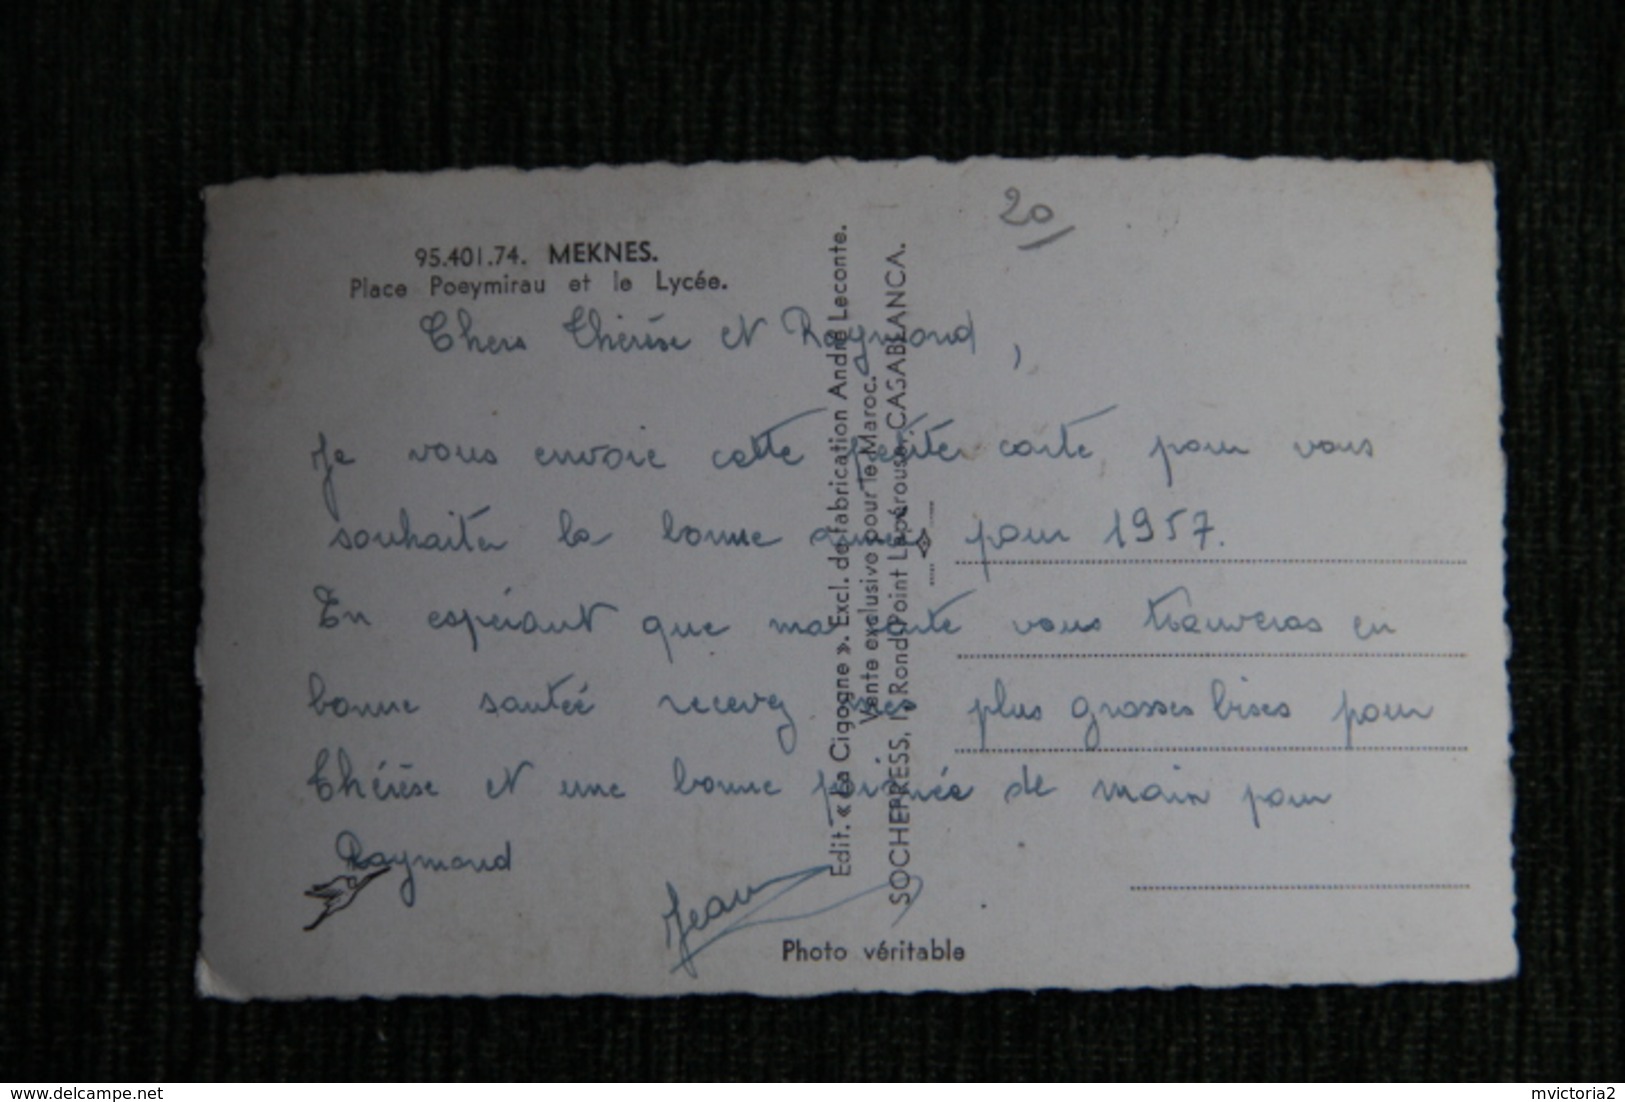 20
95.401.74. MEKNES.
Place Poeymirau et le Lycée.
Chers Thérèse et Raymond,
Je vous envoie cette petite carte pour vous
souhaiter la bonne année pour 1957.
En espérant que ma carte vous trouveras en
bonne santée recevez mes plus grosses bises pour
Thérèse et une bonne poignée de main pour
Raymond
Jean
Edit. « La Cigogne ». Excl. de fabrication André Leconte.
Vente exclusive pour le Maroc.
SOCHEPRESS, 1, Rond-Point Lapérouse, CASABLANCA.
Photo véritable
delcampe.net
mvictoria2